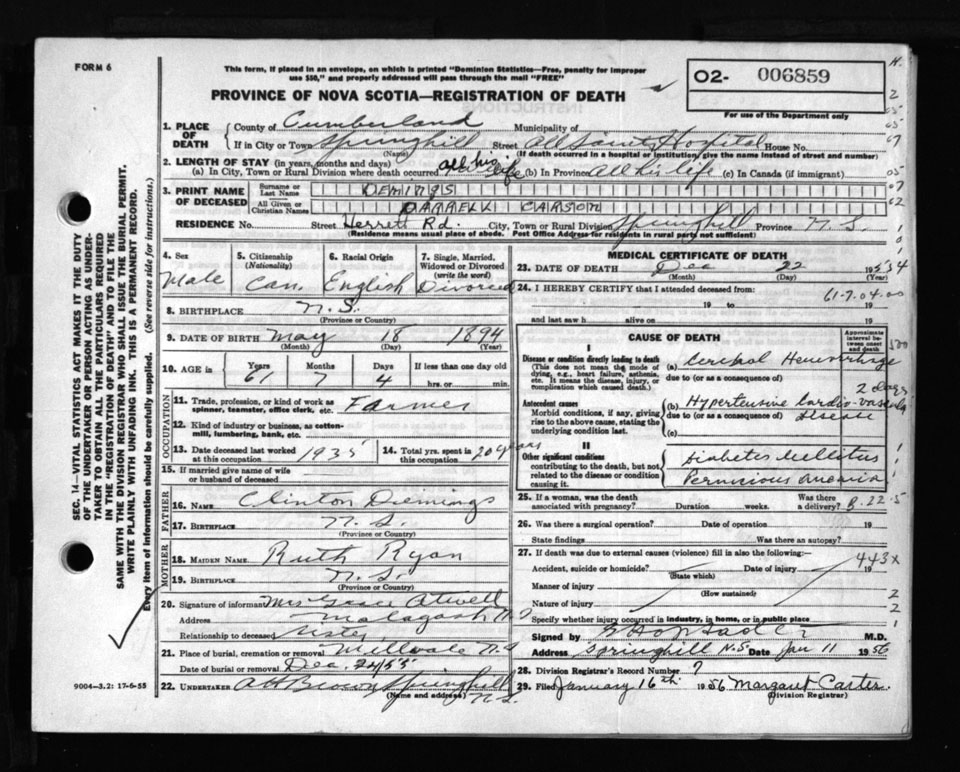 FORM 6
This form, if placed in an envelope, on which is printed "Dominion Statistics—Free, penalty for improper
use $50," and properly addressed will pass through the mail "FREE"
O2- 006859
For use of the Department only
PROVINCE OF NOVA SCOTIA—REGISTRATION OF DEATH
1. PLACE OF DEATH
County of Cumberland Municipality of
If in City or Town Springhill Street All Saints Hospital House No.
(Name) (If death occurred in a hospital or institution, give the name instead of street and number)
2. LENGTH OF STAY (in years, months and days)
(a) In City, Town or Rural Division where death occurred all his life (b) In Province All his life (c) In Canada (if immigrant)
3. PRINT NAME OF DECEASED
Surname or Last Name DEMINGS
All Given or Christian Names DARRELL CARSON
RESIDENCE No. Street Herrett Rd. City, Town or Rural Division Springhill Province N.S.
(Residence means usual place of abode. Post Office Address for residents in rural parts not sufficient)
4. Sex
Male
5. Citizenship
(Nationality)
Can.
6. Racial Origin
English
7. Single, Married, Widowed or Divorced
(write the word)
Divorced
8. BIRTHPLACE N.S.
(Province or Country)
9. DATE OF BIRTH May 18 1894
(Month) (Day) (Year)
10. AGE in Years Months Days If less than one day old
61 7 4 hrs. or min.
OCCUPATION
11. Trade, profession, or kind of work as
spinner, teamster, office clerk, etc. Farmer
12. Kind of industry or business, as cotten-
mill, lumbering, bank, etc.
13. Date deceased last worked
at this occupation 1935
14. Total yrs. spent in
this occupation 20 years
15. If married give name of wife
or husband of deceased
FATHER
16. NAME Clinton Demings
17. BIRTHPLACE N.S.
(Province or Country)
MOTHER
18. MAIDEN NAME Ruth Ryan
19. BIRTHPLACE N.S.
(Province or Country)
20. Signature of informant Mrs Grace Atwell
Address Malagash N.S
Relationship to deceased Sister
21. Place of burial, cremation or removal Millvale N.S
Date of burial or removal Dec. 24/55
22. UNDERTAKER A H Brown Springhill
(Name and address) N.S.
MEDICAL CERTIFICATE OF DEATH
23. DATE OF DEATH Dec 22 195
(Month) (Day) (Year)
24. I HEREBY CERTIFY that I attended deceased from:
61-7-04-00
19 to 19
and last saw h alive on 19
CAUSE OF DEATH
Approximate interval between onset and death
I
Disease or condition directly leading to death
(This does not mean the mode of
dying, e.g., heart failure, asthenia,
etc. It means the disease, injury, or
complication which caused death.)
(a) Cerebral Hemorrhage
due to (or as a consequence of) 2 days
Antecedent causes
Morbid conditions, if any, giving
rise to the above cause, stating the
underlying condition last.
(b) Hypertensive Cardio-vascular
due to (or as a consequence of) disease
(c)
II
Other significant conditions
contributing to the death, but not
related to the disease or condition
causing it.
Diabetes Mellitus
Pernicious anemia
25. If a woman, was the death
associated with pregnancy? Duration weeks. Was there a delivery?
B-22-5
26. Was there a surgical operation? Date of operation 19
State findings Was there an autopsy?
27. If death was due to external causes (violence) fill in also the following:—
443X
Accident, suicide or homicide? Date of injury 19
(State which)
Manner of injury
(How sustained)
Nature of injury
Specify whether injury occurred in industry, in home, or in public place
Signed by M.D.
Address Springhill N.S Date Jan 11 1956
28. Division Registrar's Record Number 7
29. Filed January 16th 1956 Margaret Carter
(Division Registrar)
SEC. 14—VITAL STATISTICS ACT MAKES IT THE DUTY
OF THE UNDERTAKER OR PERSON ACTING AS UNDER-
TAKER TO OBTAIN ALL THE PARTICULARS REQUIRED
IN THE "REGISTRATION OF DEATH" AND TO FILE THE
SAME WITH THE DIVISION REGISTRAR WHO SHALL ISSUE THE BURIAL PERMIT.
WRITE PLAINLY WITH UNFADING INK. THIS IS A PERMANENT RECORD.
Every item of information should be carefully supplied. (See reverse side for instructions.)
9004-3.2: 17-6-55